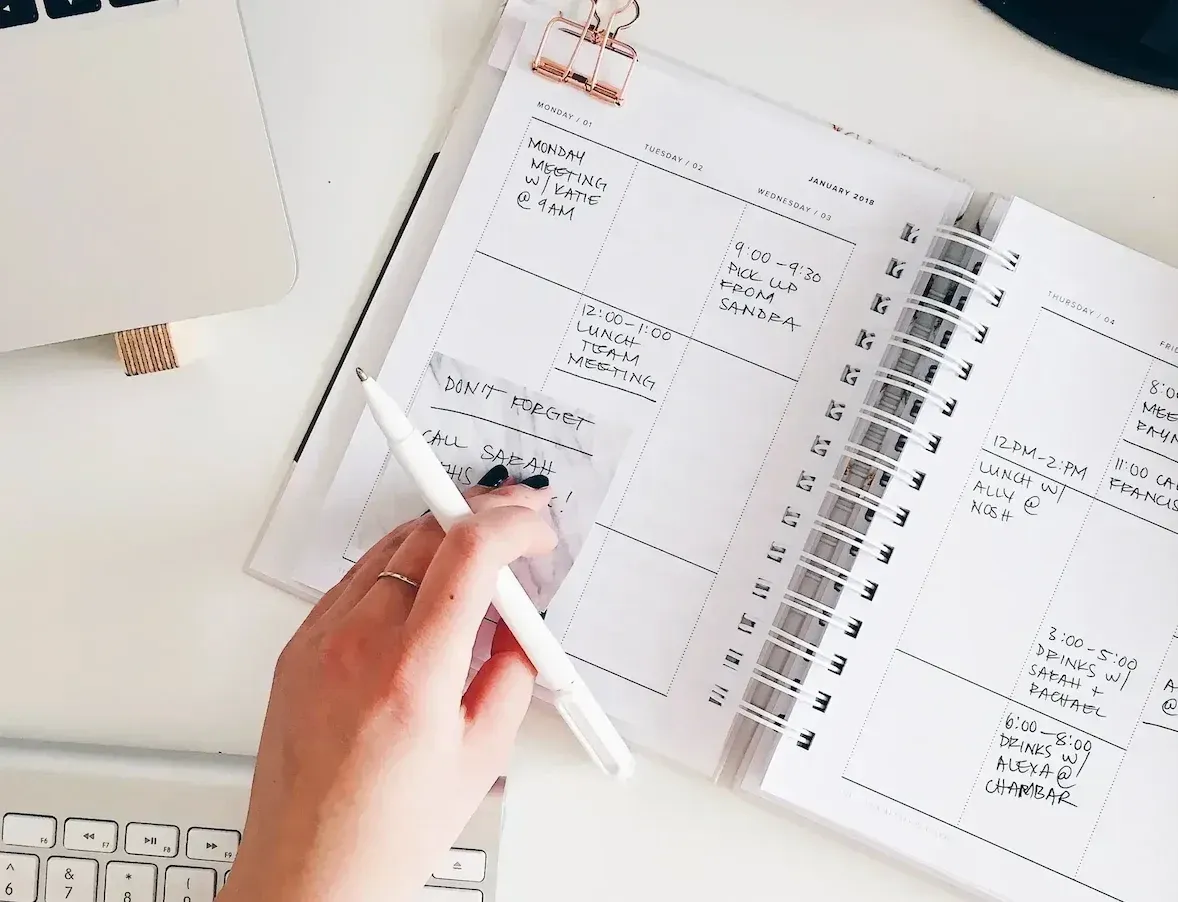 MONDAY / 01
MONDAY
MEETING
W/ KATIE
@ 9AM
TUESDAY / 02
12:00-1:00
LUNCH
TEAM
MEETING
JANUARY 2018
WEDNESDAY / 03
9:00-9:30
PICK UP
FROM
SANDRA
DON'T FORGET
CALL SARAH
THIS
!
THURSDAY / 04
12PM-2:PM
LUNCH W/
ALLY @
NOSH
FRI
8:0
MEE
11:00 CA
FRANCIS
3:00-5:00
DRINKS W/
SARAH +
RACHAEL
6:00-8:00
DRINKS W/
ALEXA @
CHAMBAR
A
@
F6
F7
F8
F9
^
6
&
7
*
8
(
9